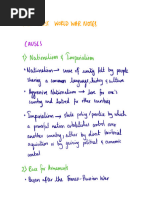 WORLD WAR NOTES
CAUSES
1) Nationalism & Imperialism
• Nationalism → sense of unity felt by people
sharing a common language, history & culture
• Aggressive Nationalism → love for one's
country and hatred for other countries
• Imperialism → state policy/practice by which
a powerful nation establishes control over
another country, either by direct territorial
acquisition or by gaining political & economic
control
2) Race for Armaments
• Began after the Franco-Prussian War